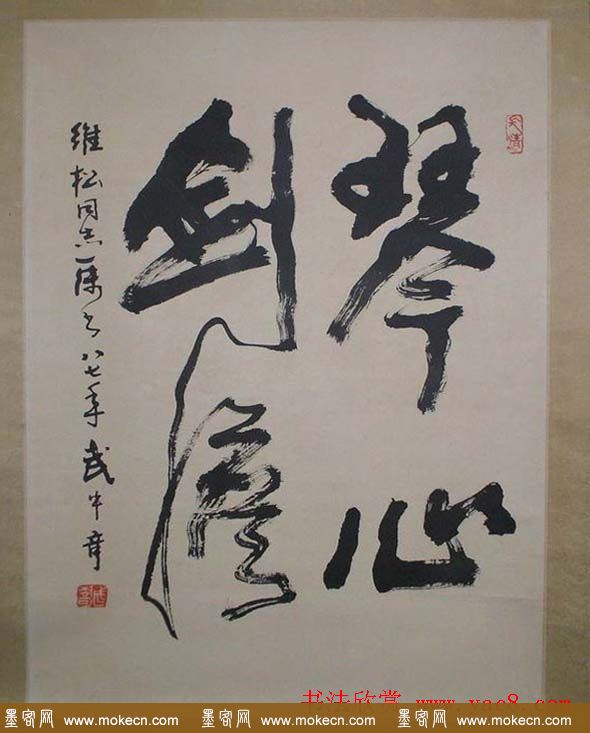 琴心
剑膽
维松同志属书八七年武中奇
书法欣赏 www.yac8.com
墨客网 www.mokecn.com 墨客网 www.mokecn.com 墨客网 www.mokecn.com